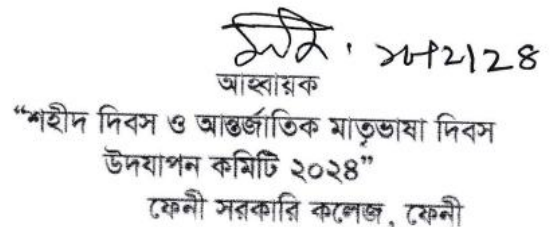 আহ্বায়ক
“শহীদ দিবস ও আন্তর্জাতিক মাতৃভাষা দিবস
উদযাপন কমিটি ২০২৪”
ফেনী সরকারি কলেজ, ফেনী